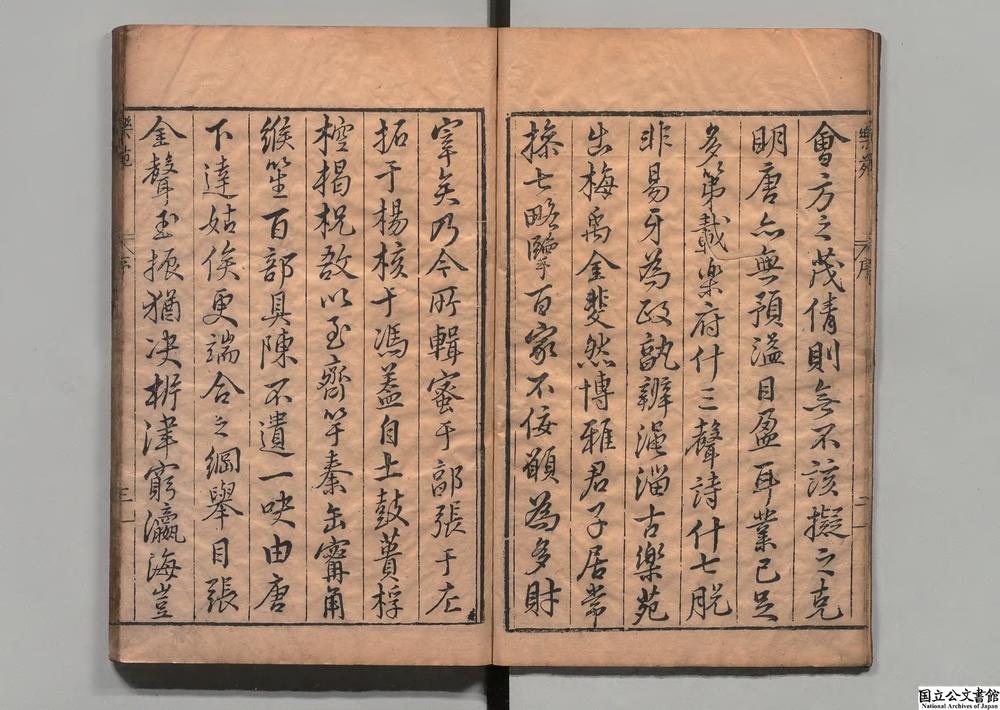 會方之茂倩則無不該擬之克
明唐亦無預溢目盈耳業已足
多第載樂府什三聲詩什七脫
非易牙為政孰辨澠淄古樂苑
出梅禹金斐然博雅君子居常
操七略擥百家不佞顧為多財
宰矣乃今所輯蜜于部張于左
拓于楊核于馮蓋自土鼓蕢桴
椌楬柷敔以至齊竽秦缶甯角
緱笙百部具陳不遺一吷由唐
下達姑俟更端合之綱舉目張
金聲玉振猶決析津窮瀛海豈
樂苑
序
二
樂苑
序
三
国立公文書館
National Archives of Japan